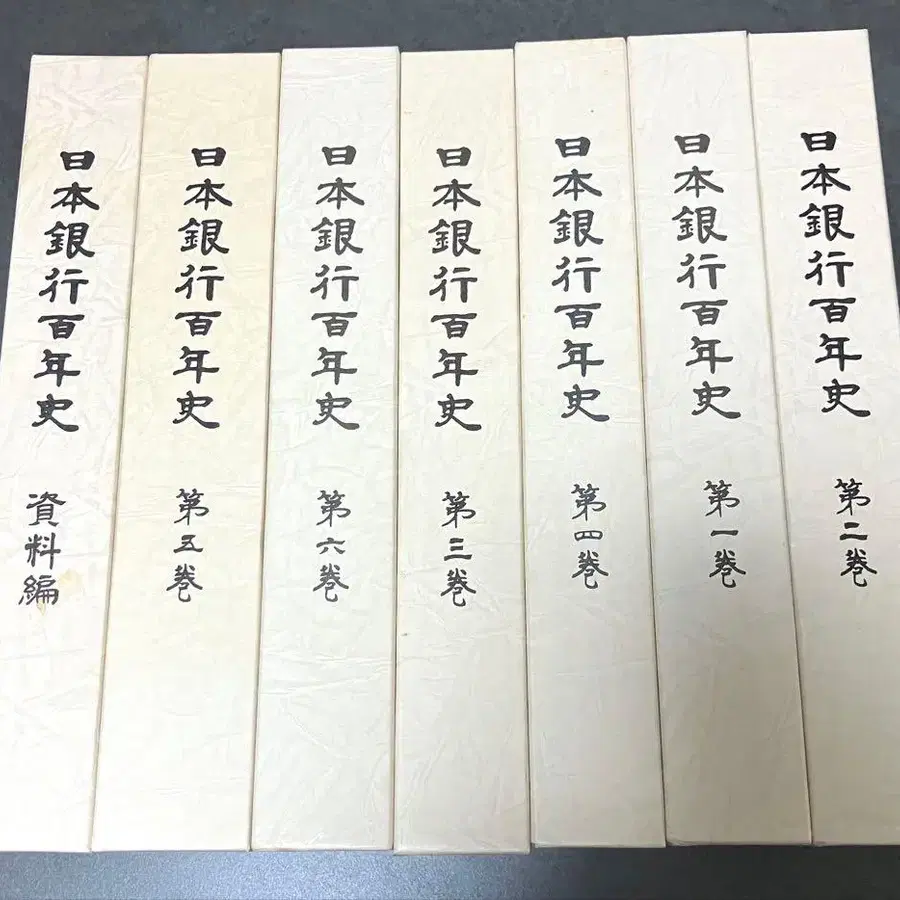 日本銀行百年史 第二巻
日本銀行百年史 第一巻
日本銀行百年史 第四巻
日本銀行百年史 第三巻
日本銀行百年史 第六巻
日本銀行百年史 第五巻
日本銀行百年史 資料編